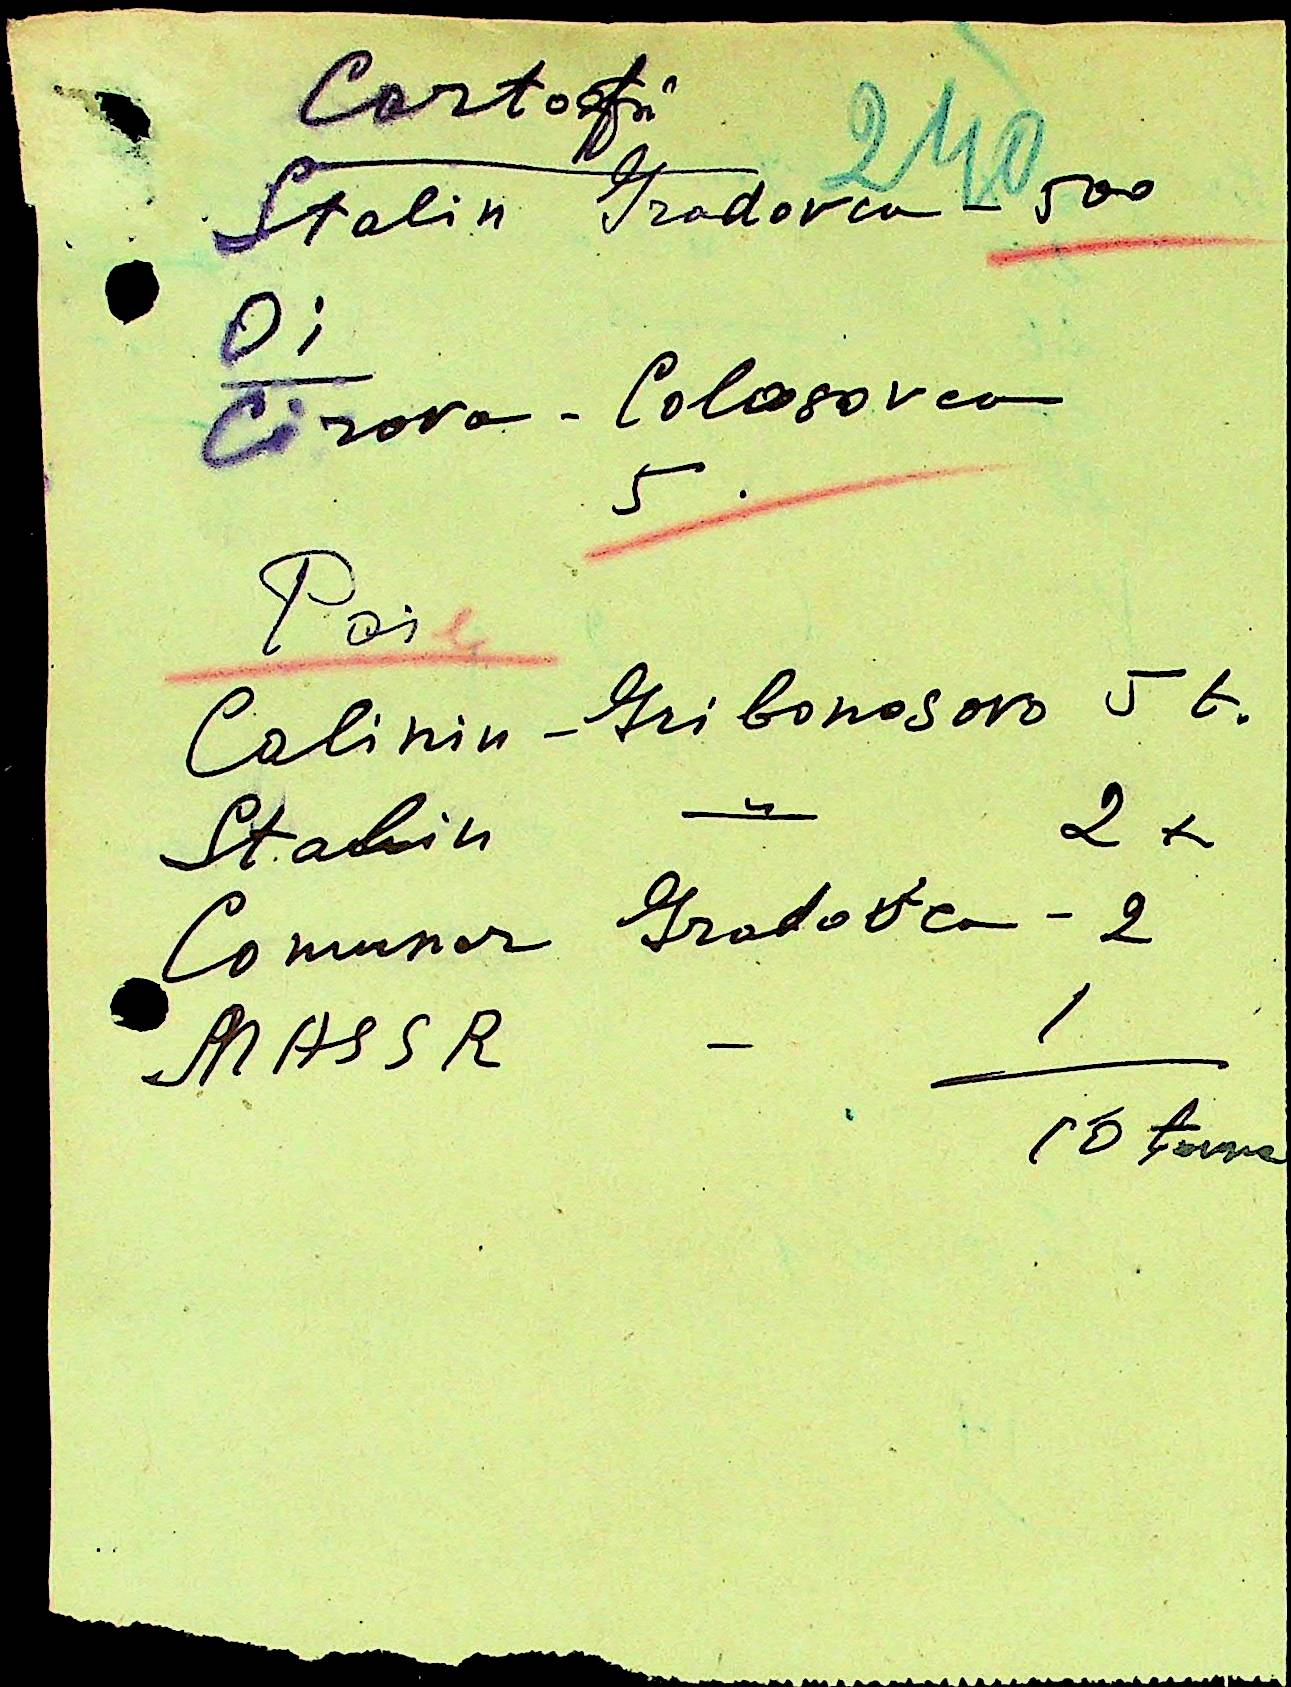 Cartofi
240
Stalin Gradovca - 500
Oi
Cirova - Colosovca
5.
Pai
Calinin - Gribonosovo 5 t.
Stalin —"— 2 t
Comunar Gradovca - 2
MASSR - 1
10 tone